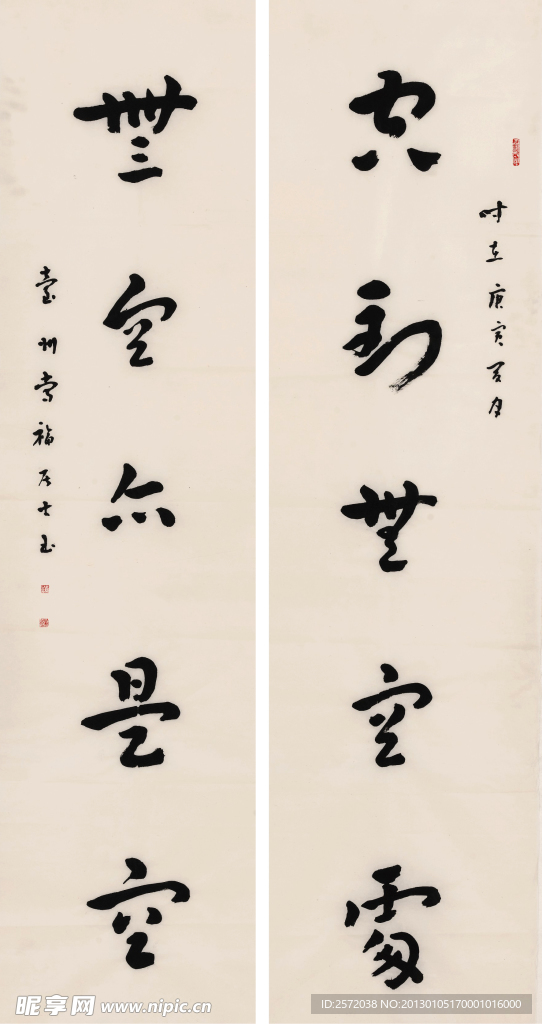 空到無空處
時在庚寅夏月
無空亦是空
臺州常福居士玉
昵享网 www.nipic.cn
ID:2572038 NO:20130105170001016000